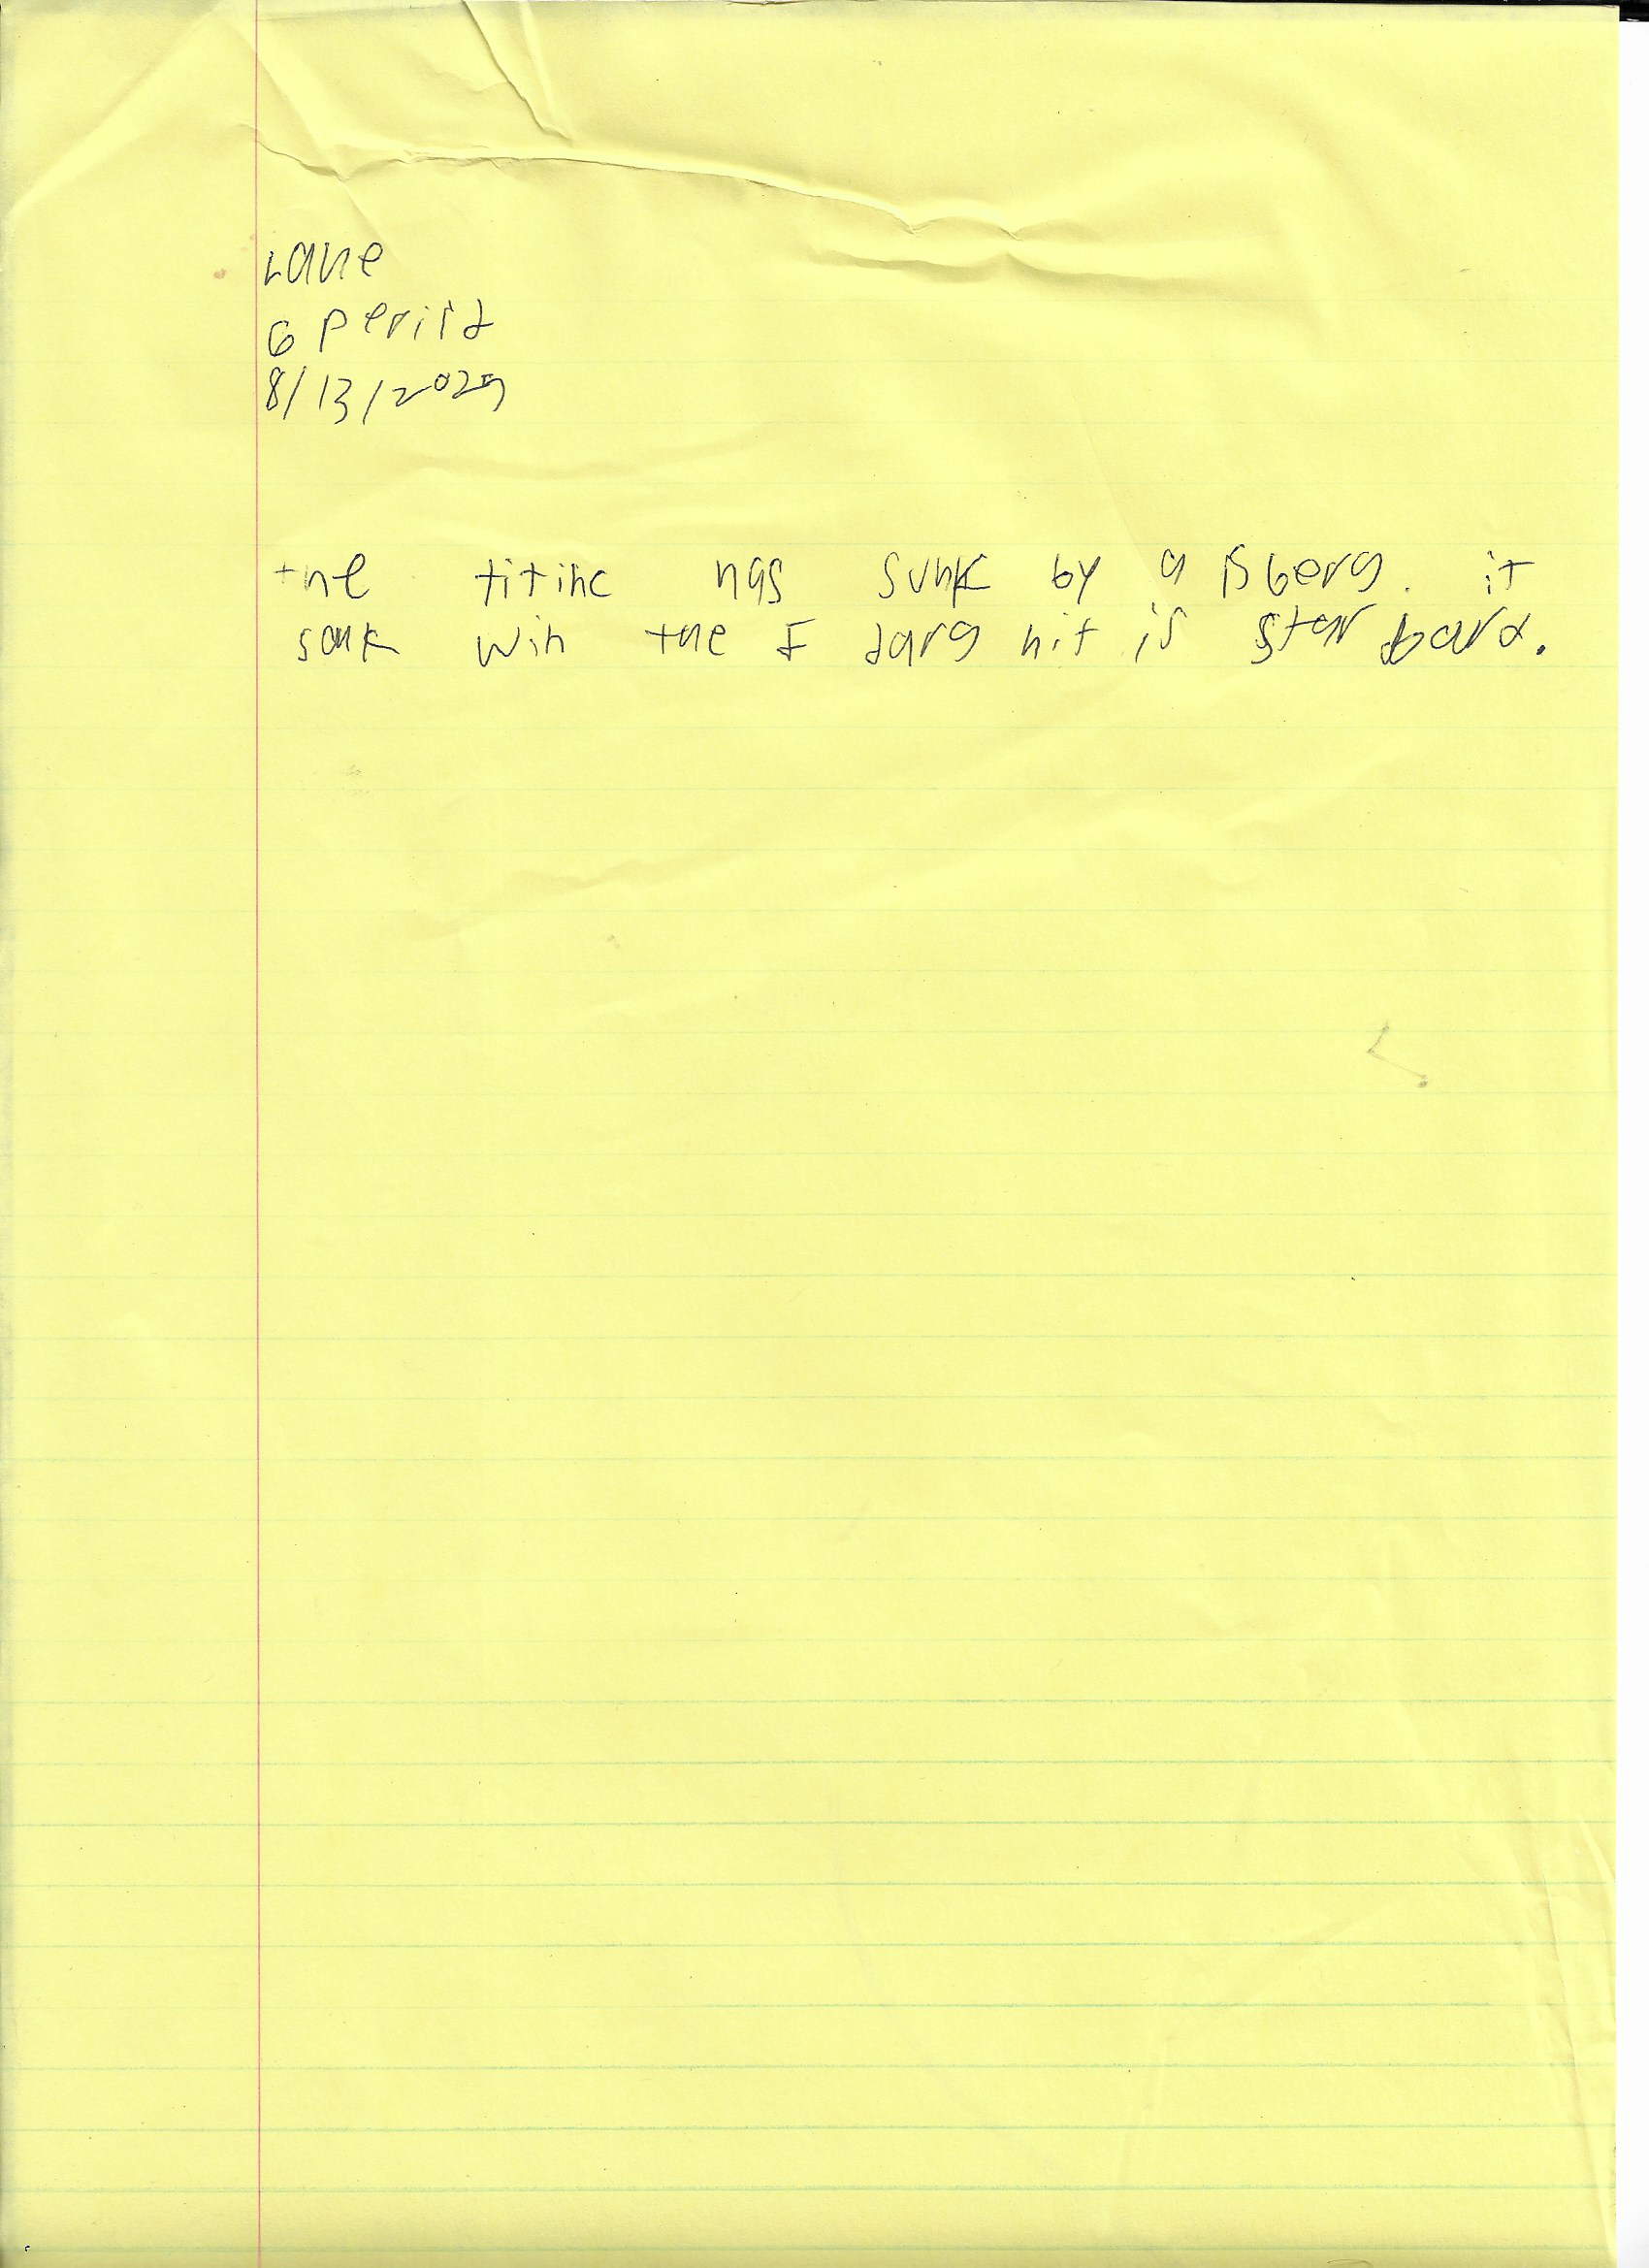 Lane
6 periid
8/13/2025
the titinc has sunk by a isberg. it
sank win the I darg hit is star bard.